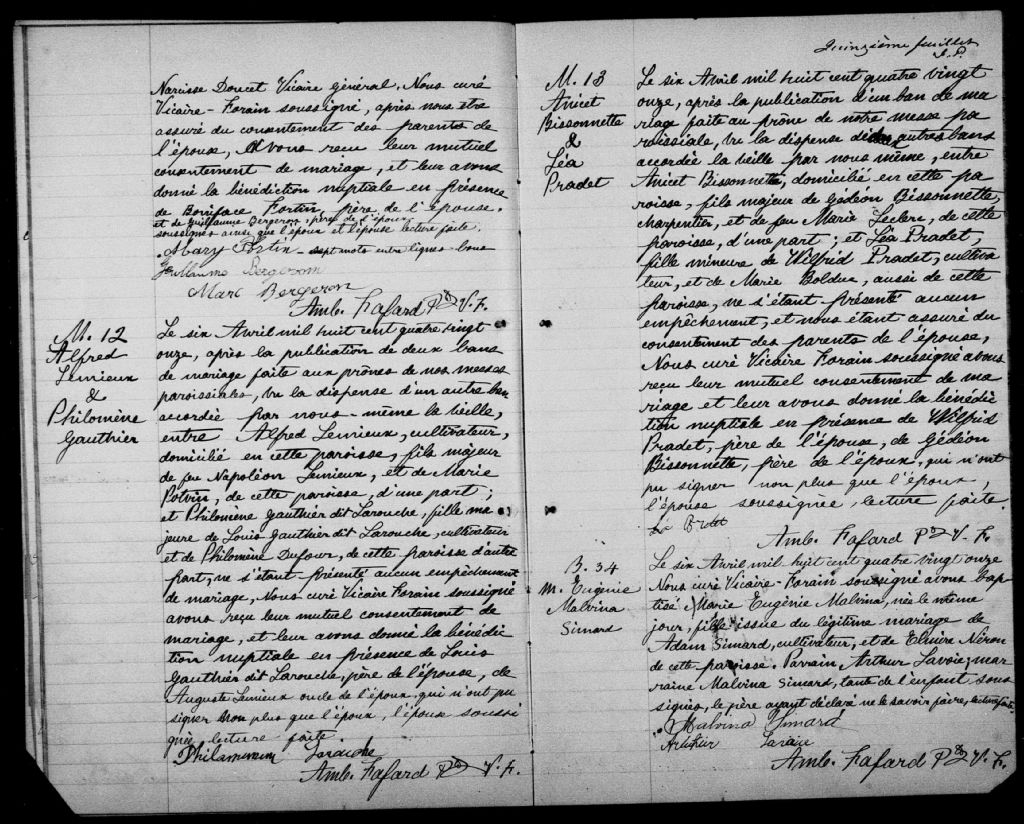 Narcisse Doucet Vicaire général, Nous curé
Vicaire-Forain soussigné, après nous etre
assuré du consentement des parents de
l'épouse, avons reçu leur mutuel
consentement de mariage, et leur avons
donné la bénédiction nuptiale en présence
de Boniface Fortin, père de l'épouse.
et de Guillaume Bergeron, père de l'époux
soussignés ainsi que l'époux et l'épouse lecture faite.
Mary Fortin - sept mots entre lignes bons
Guillaume Bergeron
Marc Bergeron
Amb. Fafard Ptre V. F.
M. 12
Alfred
Lemieux
&
Philomène
Gauthier
Le six Avril mil huit cent quatre vingt
onze, après la publication de deux bans
de mariage faite aux prônes de nos messes
paroissiales, vu la dispense d'un autre ban
accordée par nous-même la veille,
entre Alfred Lemieux, cultivateur,
domicilié en cette paroisse, fils majeur
de feu Napoléon Lemieux, et de Marie
Potvin, de cette paroisse, d'une part;
et Philomène Gauthier dit Larouche, fille ma
jeure de Louis Gauthier dit Larouche, cultivateur
et de Philomène Dufour, de cette paroisse d'autre
part, ne s'étant présenté aucun empêchement
de mariage, Nous curé Vicaire Forain soussigné
avons reçu leur mutuel consentement de
mariage, et leur avons donné la bénédic
tion nuptiale en présence de Louis
Gauthier dit Larouche, père de l'épouse, de
Auguste Lemieux oncle de l'époux, qui n'ont pu
signer non plus que l'époux, l'épouse soussi
gnée lecture faite
Philomenem Larouche
Amb. Fafard Ptre V. F.
Quinzième feuillet
M. 13
Anicet
Bissonnette
&
Léa
Pradet
Le six Avril mil huit cent quatre vingt
onze, après la publication d'un ban de ma
riage faite au prône de notre messe pa
roissiale, vu la dispense des deux autres bans
accordée la veille par nous même, entre
Anicet Bissonnette, domicilié en cette pa
roisse, fils majeur de Gédéon Bissonnette,
charpentier, et de feu Marie Leclerc, de cette
paroisse, d'une part; et Léa Pradet,
fille mineure de Wilfrid Pradet, cultiva
teur, et de Marie Bolduc, aussi de cette
paroisse, ne s'étant présenté aucun
empêchement, et nous étant assuré du
consentement des parents de l'épouse,
Nous curé Vicaire Forain soussigné avons
reçu leur mutuel consentement de ma
riage et leur avons donné la bénédic
tion nuptiale en présence de Wilfrid
Pradet, père de l'épouse, de Gédéon
Bissonnette, père de l'époux, qui n'ont
pu signer non plus que l'époux,
l'épouse soussignée, lecture faite
Amb. Fafard Ptre V. F.
B. 34
M. Eugénie
Malvina
Simard
Le six Avril mil huit cent quatre vingt onze
Nous curé Vicaire-Forain soussigné avons bap
tisé Marie Eugénie Malvina, née le même
jour, fille issue du légitime mariage de
Adam Simard, cultivateur, et de Elmire Néron
de cette paroisse. Parrain, Arthur Lavoie; mar
raine Malvina Simard, tante de l'enfant sous
signés, le père ayant déclaré ne le savoir faire, lecture faite.
Malvina Simard
Arthur Lavoie
Amb. Fafard Ptre V. F.